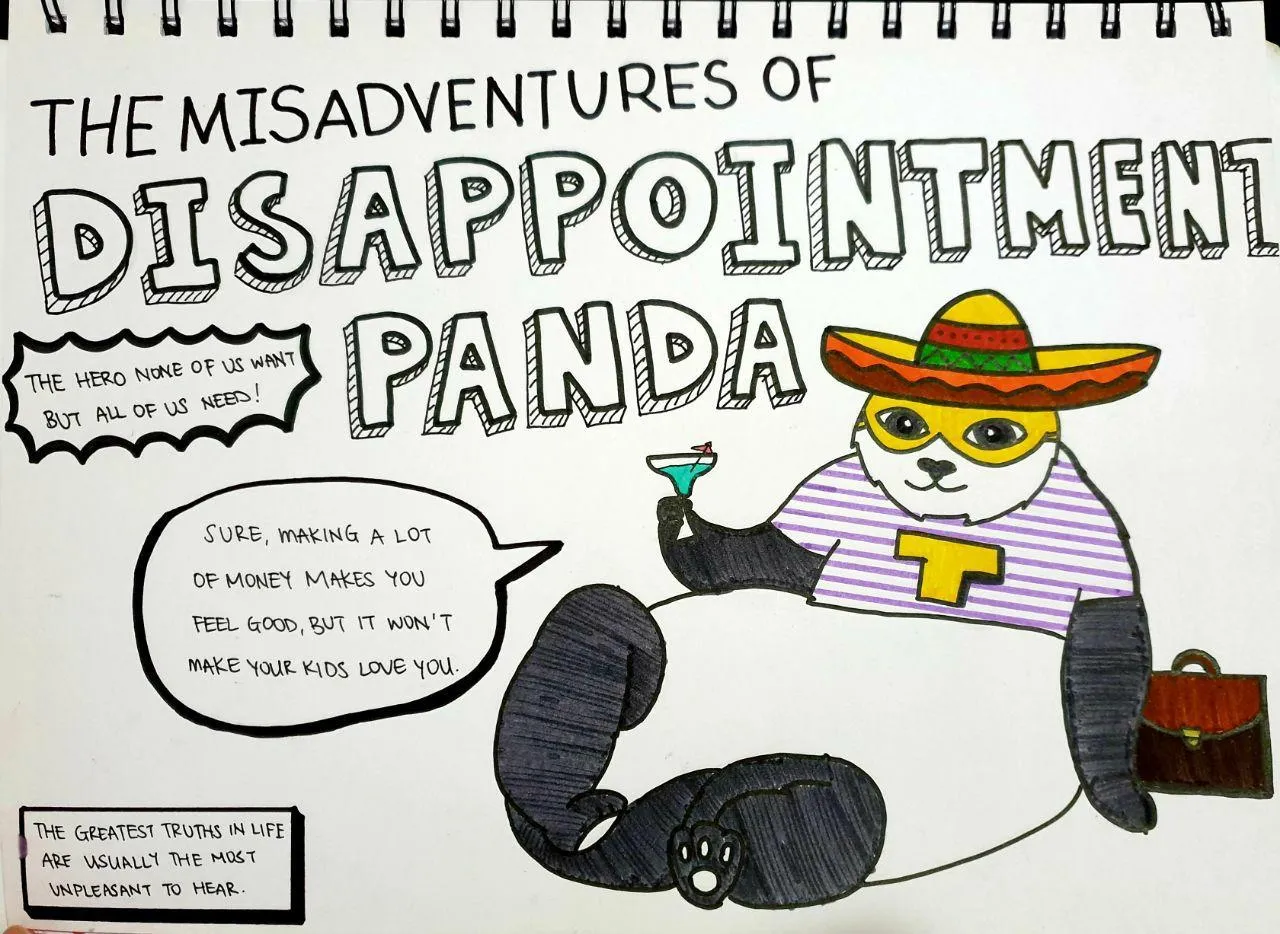 THE MISADVENTURES OF
DISAPPOINTMENT
PANDA
THE HERO NONE OF US WANT
BUT ALL OF US NEED!
SURE, MAKING A LOT
OF MONEY MAKES YOU
FEEL GOOD, BUT IT WON'T
MAKE YOUR KIDS LOVE YOU.
T
THE GREATEST TRUTHS IN LIFE
ARE USUALLY THE MOST
UNPLEASANT TO HEAR.